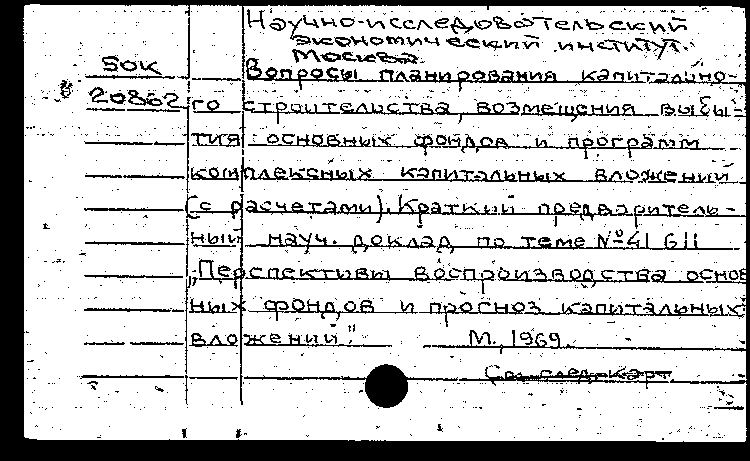 Научно-исследовательский
экономический институт.
Москва.
50К
Вопросы планирования капитально-
20862
го строительства, возмещения выбы-
тия основных фондов и программ
комплексных капитальных вложений
(с расчетами). Краткий предваритель-
ный науч. доклад по теме №41 611
„Перспективы воспроизводства основ
ных фондов и прогноз капитальных
вложений." М., 1969.
См. след. карт.